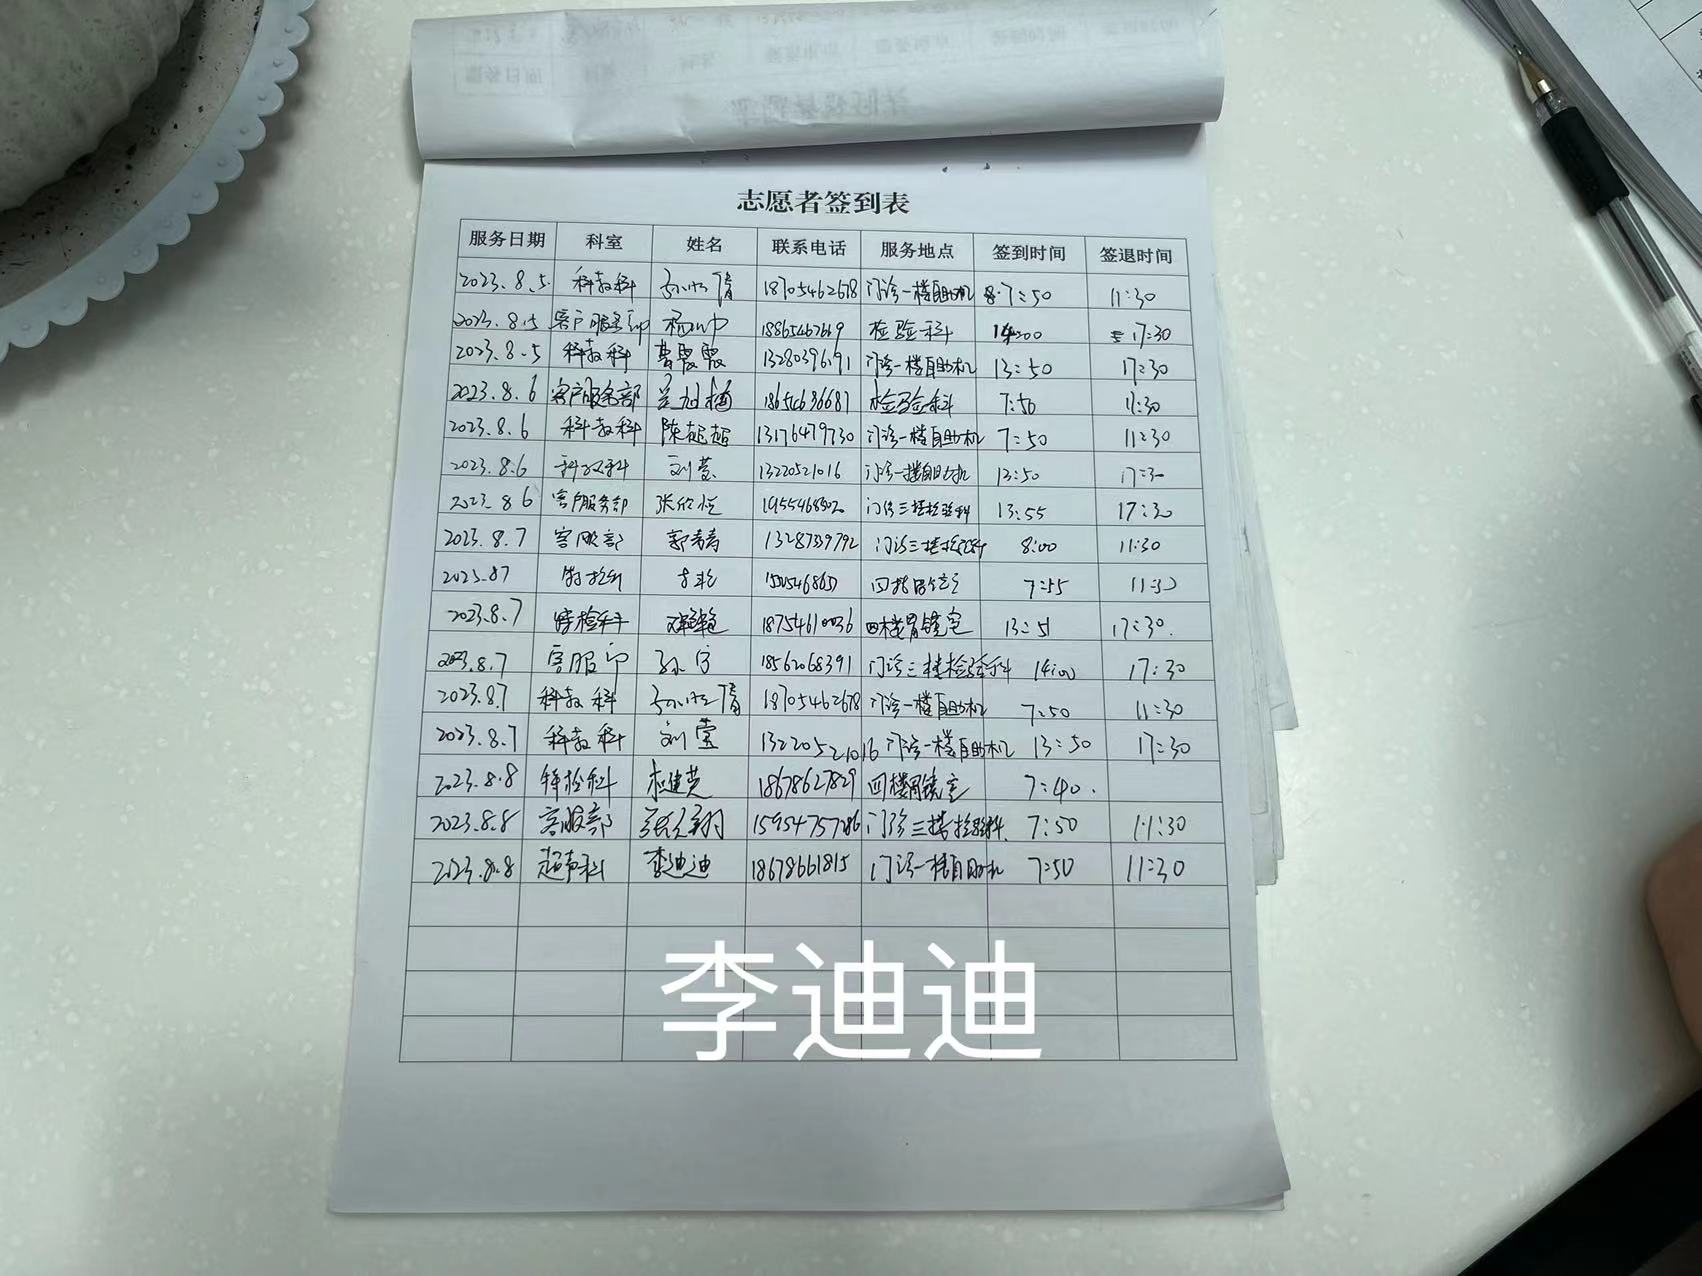 志愿者签到表
服务日期 科室 姓名 联系电话 服务地点 签到时间 签退时间
2023.8.5 科教科 18705462678 门诊一楼自助机 7:50 11:30
2023.8.5 客户服务部 检验科 14:00 17:30
2023.8.5 科教科 曹霞霞 13280396191 门诊一楼自助机 13:50 17:30
2023.8.6 客户服务部 18654686687 检验科 7:50 11:30
2023.8.6 科教科 陈超超 13176479730 门诊一楼自助机 7:50 11:30
2023.8.6 科教科 刘莹 13220521016 门诊一楼自助机 13:50 17:30
2023.8.6 客户服务部 门诊三楼检验科 13:55 17:30
2023.8.7 客服部 郭青青 13287339792 门诊三楼检验科 8:00 11:30
2023.8.7 特检科 四楼胃镜室 7:55 11:30
2023.8.7 特检科 18754610036 四楼胃镜室 13:51 17:30.
2023.8.7 客服部 18562068391 门诊三楼检验科 14:00 17:30
2023.8.7 科教科 18705462678 门诊一楼自助机 7:50 11:30
2023.8.7 科教科 刘莹 13220521016 门诊一楼自助机 13:50 17:30
2023.8.8 特检科 杜建芝 18678627829 四楼胃镜室 7:40.
2023.8.8 客服部 15954757286 门诊三楼检验科 7:50 11:30
2023.8.8 超声科 李迪迪 18678661815 门诊一楼自助机 7:50 11:30
李迪迪